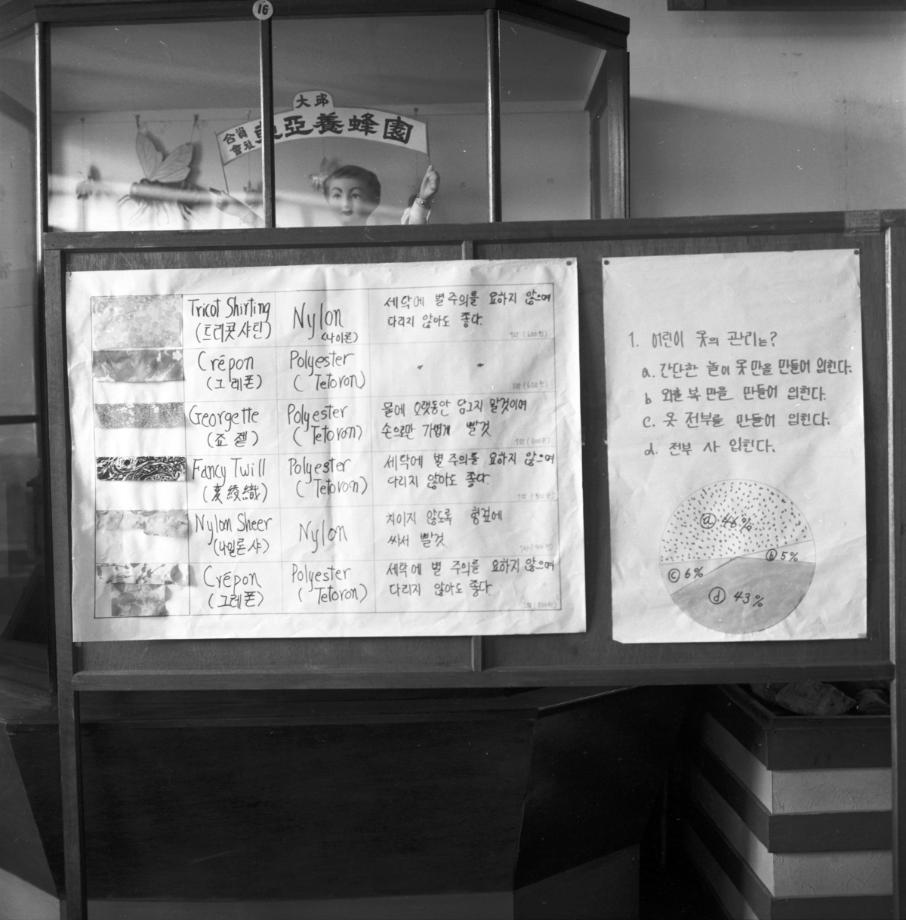 16
大邱
合資
會社
東亞養蜂園
Tricot Shirting
(트리콧샤틴)
Nylon
(나이론)
세탁에 별 주의를 요하지 않으며
다리지 않아도 좋다.
Crépon
(그레폰)
Polyester
(Tetoron)
〃 〃
Georgette
(죠젵)
Polyester
(Tetoron)
물에 오랫동안 담그지 말것이며
손으로만 가볍게 빨것
Fancy Twill
(綾織)
Polyester
(Tetoron)
세탁에 별 주의를 요하지 않으며
다리지 않아도 좋다.
Nylon Sheer
(나일론샤)
Nylon
치이지 않도록 헝겊에
싸서 빨것
Crépon
(그레폰)
Polyester
(Tetoron)
세탁에 별 주의를 요하지 않으며
다리지 않아도 좋다.
1. 어린이 옷의 관리는?
a. 간단한 놀이 옷만을 만들어 입힌다.
b 외출복만을 만들어 입힌다.
c. 옷 전부를 만들어 입힌다.
d. 전부 사 입힌다.
ⓐ 46%
ⓑ 5%
ⓒ 6%
ⓓ 43%